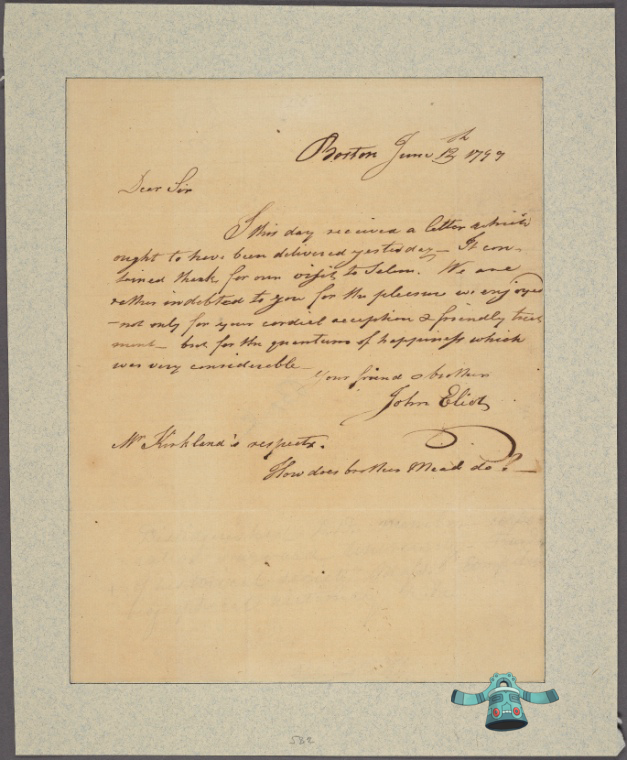 Boston June 13th 1799
Dear Sir
I this day received a letter which
ought to have been delivered yesterday – It con-
tained thanks for our visit to Salem. We are
rather indebted to you for the pleasure we enjoyed
– not only for your cordial reception & friendly treat
ment – but for the quantum of happiness which
was very considerable –
Your friend & brother
John Eliot
Mr Kirkland's respects.
How does brother Mead do? –
582